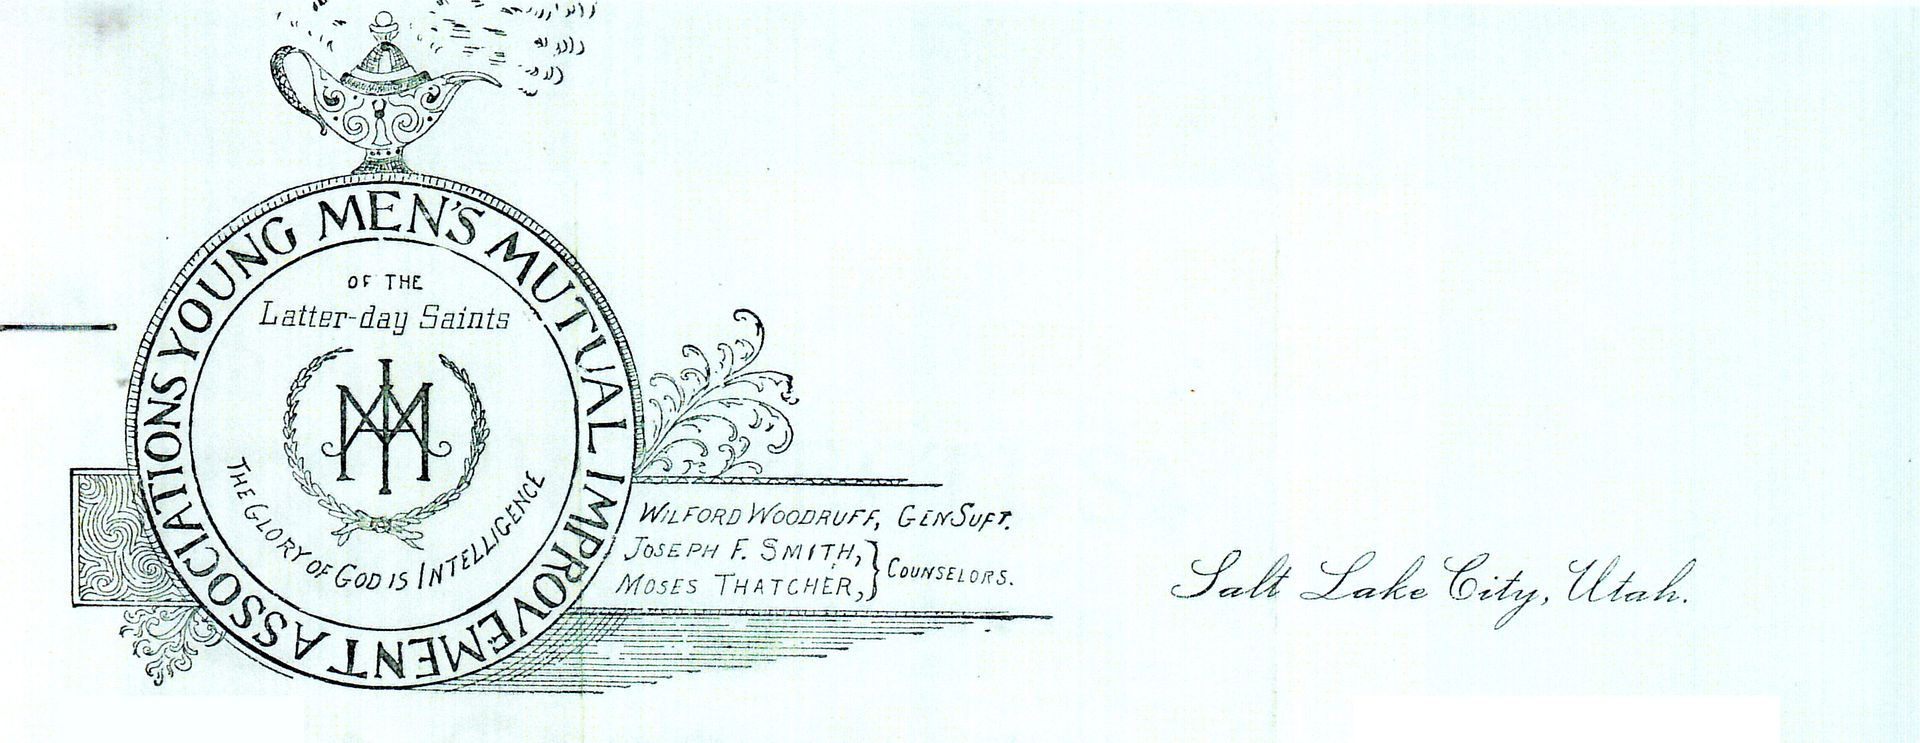 YOUNG MEN'S MUTUAL IMPROVEMENT ASSOCIATIONS
OF THE
Latter-day Saints
MIA
THE GLORY OF GOD IS INTELLIGENCE
WILFORD WOODRUFF, GEN SUPT.
JOSEPH F. SMITH,
MOSES THATCHER,
COUNSELORS.
Salt Lake City, Utah.